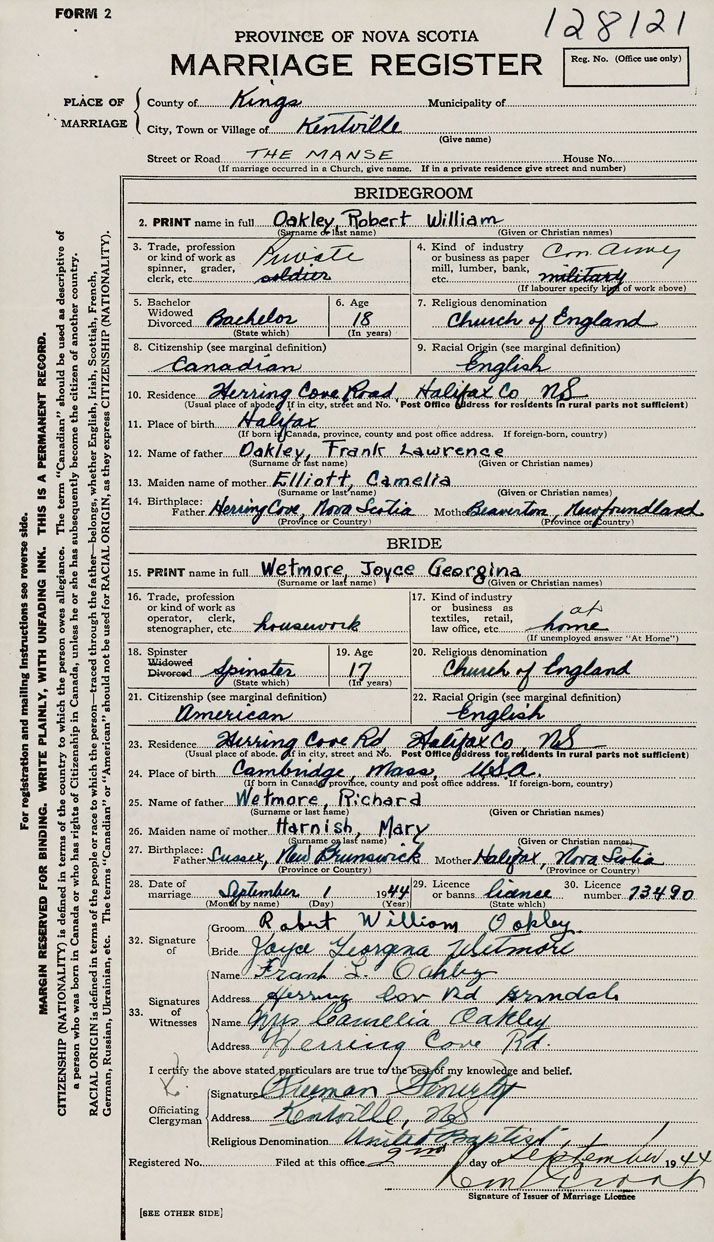 FORM 2
128121
PROVINCE OF NOVA SCOTIA
MARRIAGE REGISTER
Reg. No. (Office use only)
PLACE OF MARRIAGE
County of Kings Municipality of
City, Town or Village of Kentville
(Give name)
Street or Road THE MANSE House No.
(If marriage occurred in a Church, give name. If in a private residence give street and number)
BRIDEGROOM
2. PRINT name in full Oakley, Robert William
(Surname or last name) (Given or Christian names)
3. Trade, profession or kind of work as spinner, grader, clerk, etc. Private soldier
4. Kind of industry or business as paper mill, lumber, bank, etc. Can Army military
(If labourer specify kind of work above)
5. Bachelor Widowed Divorced Bachelor
(State which)
6. Age 18
(In years)
7. Religious denomination
Church of England
8. Citizenship (see marginal definition)
Canadian
9. Racial Origin (see marginal definition)
English
10. Residence Herring Cove Road Halifax Co NS
(Usual place of abode. If in city, street and No. Post Office address for residents in rural parts not sufficient)
11. Place of birth Halifax
(If born in Canada, province, county and post office address. If foreign-born, country)
12. Name of father Oakley, Frank Lawrence
(Surname or last name) (Given or Christian names)
13. Maiden name of mother Elliott, Camelia
(Surname or last name) (Given or Christian names)
14. Birthplace: Father Herring Cove, Nova Scotia Mother Beaverton, Newfoundland
(Province or Country) (Province or Country)
BRIDE
15. PRINT name in full Wetmore, Joyce Georgina
(Surname or last name) (Given or Christian names)
16. Trade, profession or kind of work as operator, clerk, stenographer, etc. housework
17. Kind of industry or business as textiles, retail, law office, etc. at home
(If unemployed answer "At Home")
18. Spinster Widowed Divorced Spinster
(State which)
19. Age 17
(In years)
20. Religious denomination
Church of England
21. Citizenship (see marginal definition)
American
22. Racial Origin (see marginal definition)
English
23. Residence Herring Cove Rd Halifax Co NS
(Usual place of abode. If in city, street and No. Post Office address for residents in rural parts not sufficient)
24. Place of birth Cambridge, Mass, U.S.A.
(If born in Canada, province, county and post office address. If foreign-born, country)
25. Name of father Wetmore, Richard
(Surname or last name) (Given or Christian names)
26. Maiden name of mother Harnish, Mary
(Surname or last name) (Given or Christian names)
27. Birthplace: Father Sussex, New Brunswick Mother Halifax, Nova Scotia
(Province or Country) (Province or Country)
28. Date of marriage September 1 1944
(Month by name) (Day) (Year)
29. Licence or banns licence
(State which)
30. Licence number 73490
32. Signature of
Groom Robert William Oakley
Bride Joyce Georgina Wetmore
33. Signatures of Witnesses
Name Frank L. Oakley
Address Herring Cov Rd Armdale
Name Mrs Camelia Oakley
Address Herring Cove Rd.
I certify the above stated particulars are true to the best of my knowledge and belief.
Officiating Clergyman
Signature Freeman Fenerty
Address Kentville, NS
Religious Denomination United Baptist
Registered No. Filed at this office 2nd day of September 1944
Signature of Issuer of Marriage Licence
[SEE OTHER SIDE]
For registration and mailing instructions see reverse side.
MARGIN RESERVED FOR BINDING. WRITE PLAINLY, WITH UNFADING INK. THIS IS A PERMANENT RECORD.
CITIZENSHIP (NATIONALITY) is defined in terms of the country to which the person owes allegiance. The term "Canadian" should be used as descriptive of
a person who was born in Canada or who has rights of Citizenship in Canada, unless he or she has subsequently become the citizen of another country.
RACIAL ORIGIN is defined in terms of the people or race to which the person—traced through the father—belongs, whether English, Irish, Scottish, French,
German, Russian, Ukrainian, etc. The terms "Canadian" or "American" should not be used for RACIAL ORIGIN, as they express CITIZENSHIP (NATIONALITY).